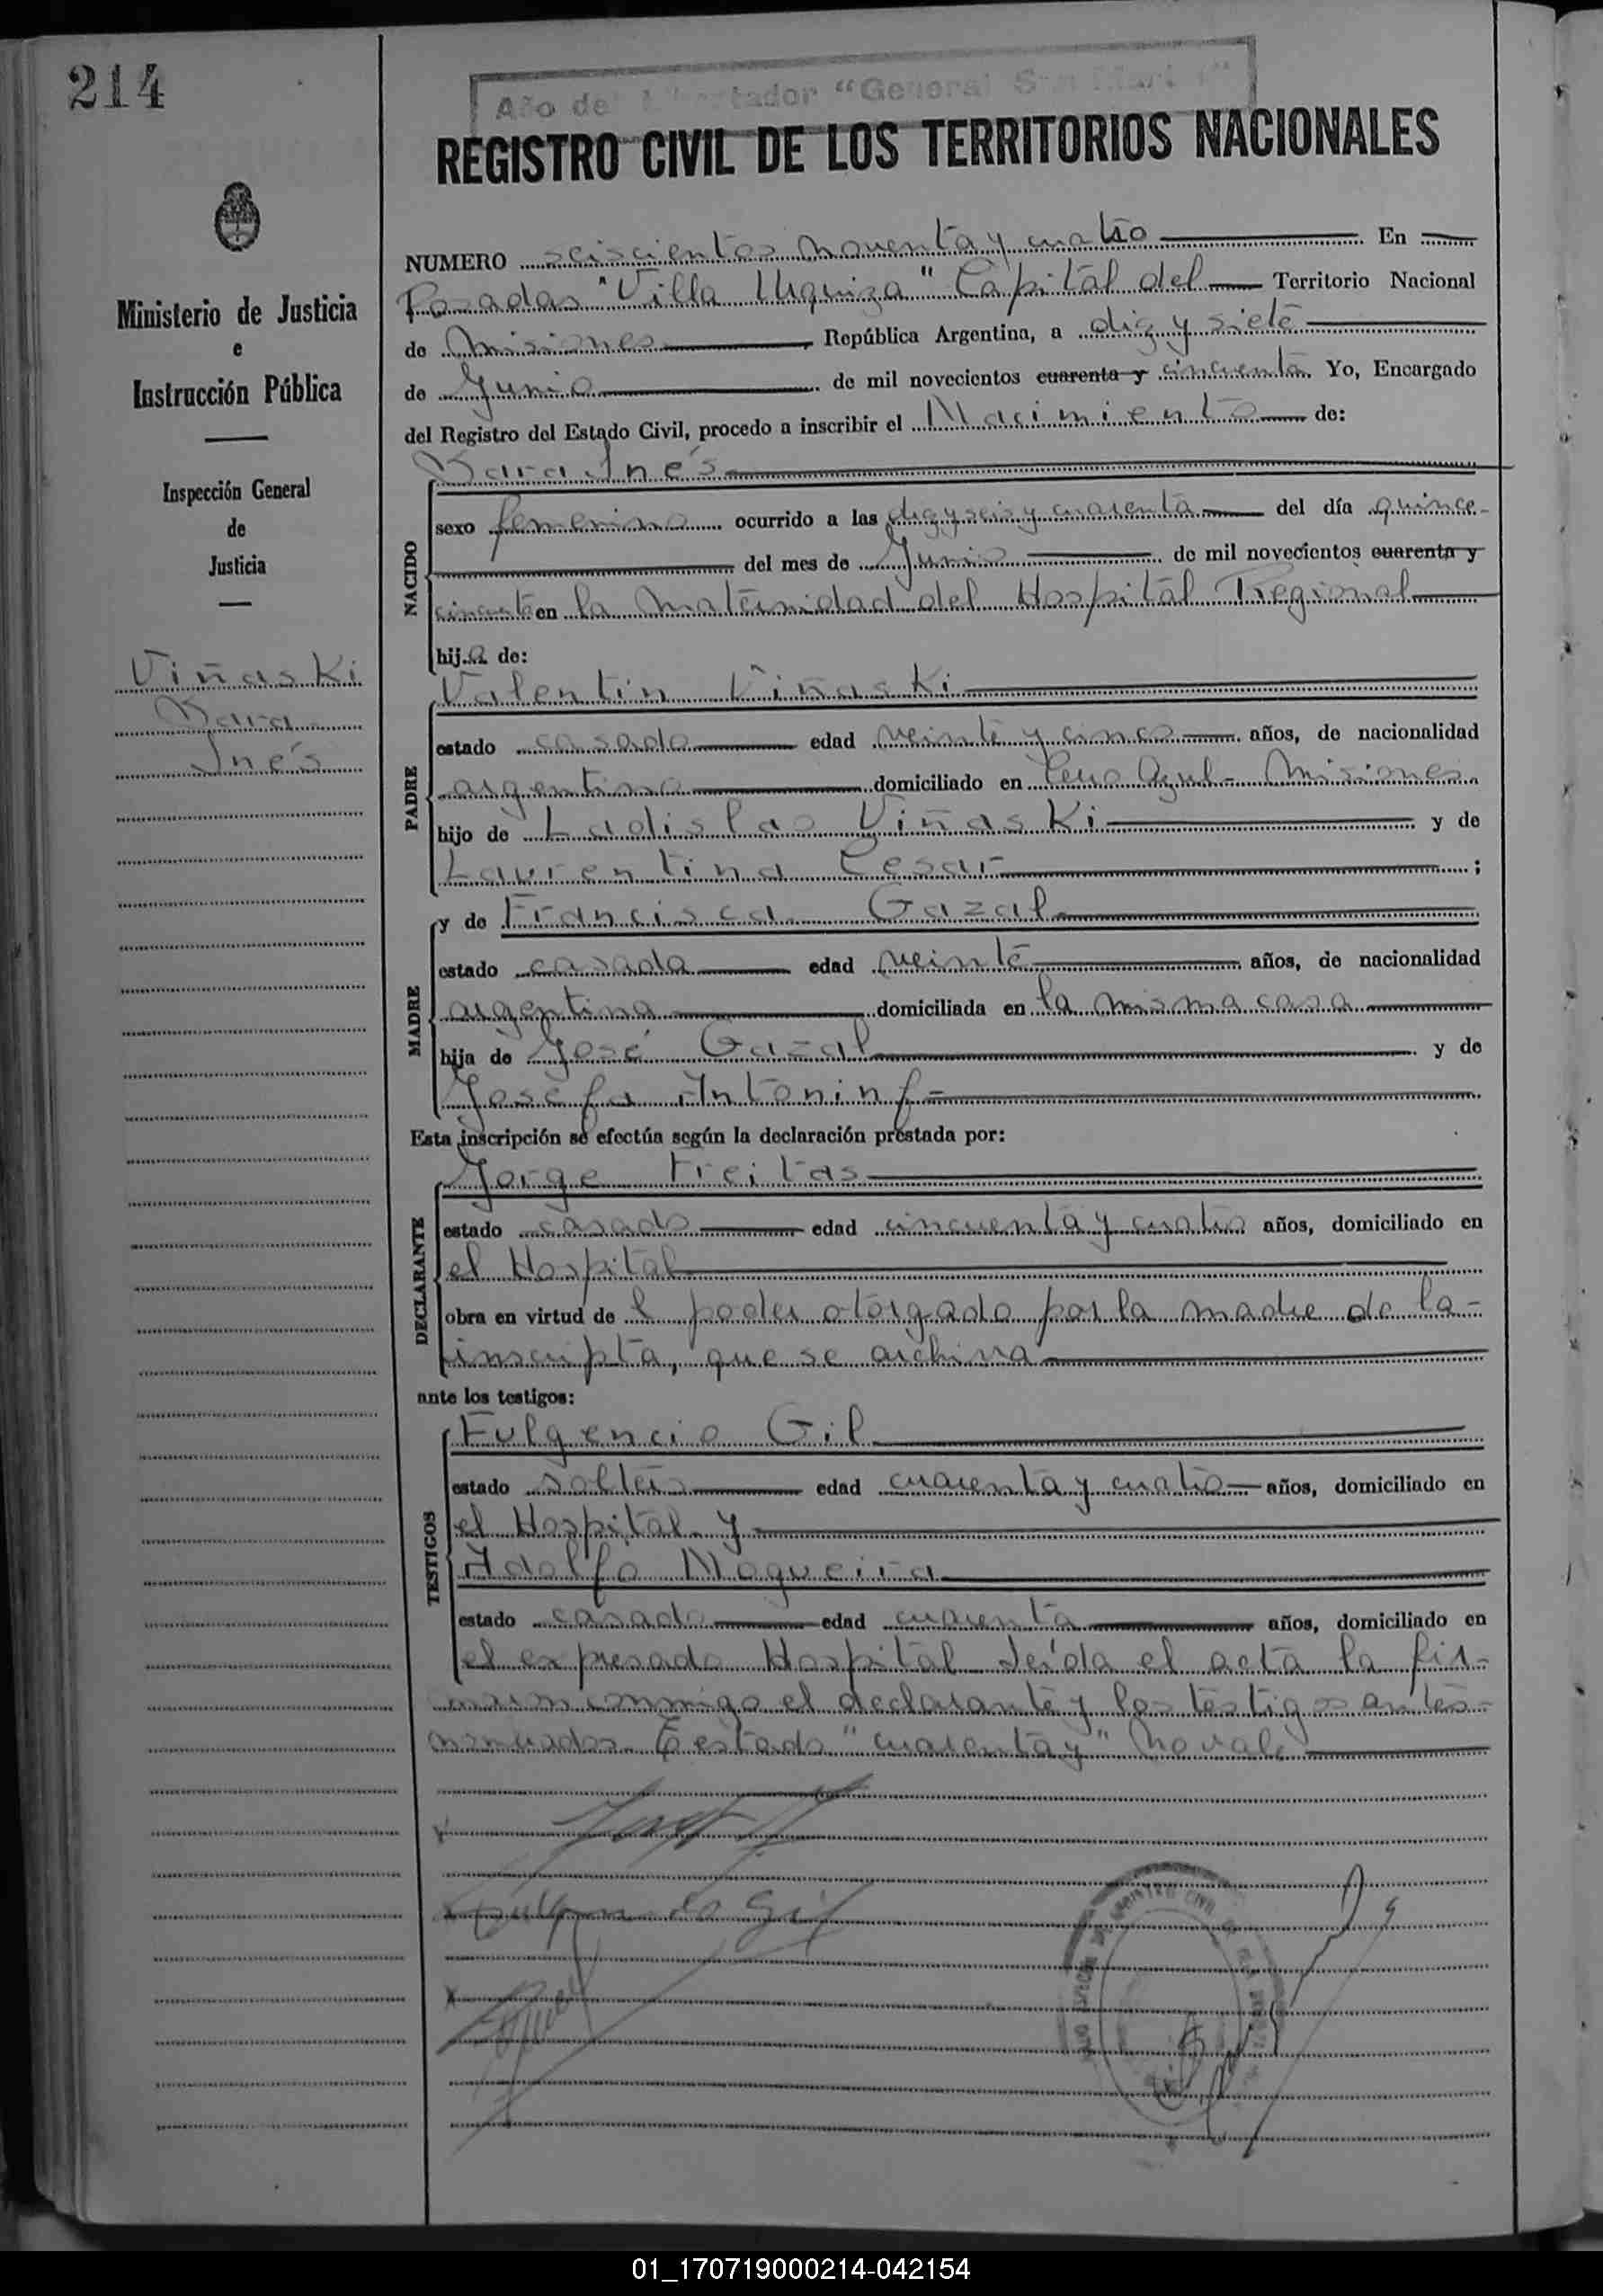 214
Año del Libertador "General San Martín"
REGISTRO CIVIL DE LOS TERRITORIOS NACIONALES
Ministerio de Justicia
e
Instrucción Pública
Inspección General
de
Justicia
Viñaski
Inés
NUMERO seiscientos noventa y cuatro En
Posadas "Villa Urquiza" Capital del Territorio Nacional
de Misiones República Argentina, a diez y siete
de Junio de mil novecientos cuarenta y cincuenta Yo, Encargado
del Registro del Estado Civil, procedo a inscribir el Nacimiento de:
Inés
NACIDO
sexo femenino ocurrido a las diez y seis y cuarenta del día quince
del mes de Junio de mil novecientos cuarenta y
cincuenta en la Maternidad del Hospital Regional
hija de:
Valentín Viñaski
PADRE
estado casado edad veinte y cinco años, de nacionalidad
argentino domiciliado en Cerro Azul - Misiones
hijo de Ladislao Viñaski y de
Laurentina Cesar ;
y de Francisca Gazal
MADRE
estado casada edad veinte años, de nacionalidad
argentina domiciliada en la misma casa
hija de José Gazal y de
Josefa
Esta inscripción se efectúa según la declaración prestada por:
Jorge Freitas
DECLARANTE
estado casado edad cincuenta y cuatro años, domiciliado en
el Hospital
obra en virtud de l poder otorgado por la madre de la-
inscripta, que se archiva
ante los testigos:
Fulgencio Gil
TESTIGOS
estado soltero edad cuarenta y cuatro años, domiciliado en
el Hospital y
Adolfo Nogueira
estado casado edad cuarenta años, domiciliado en
el expresado Hospital Leída el acta la fir-
maron conmigo el declarante y los testigos antes-
nombrados. Testado "cuarenta y" No vale
01_170719000214-042154